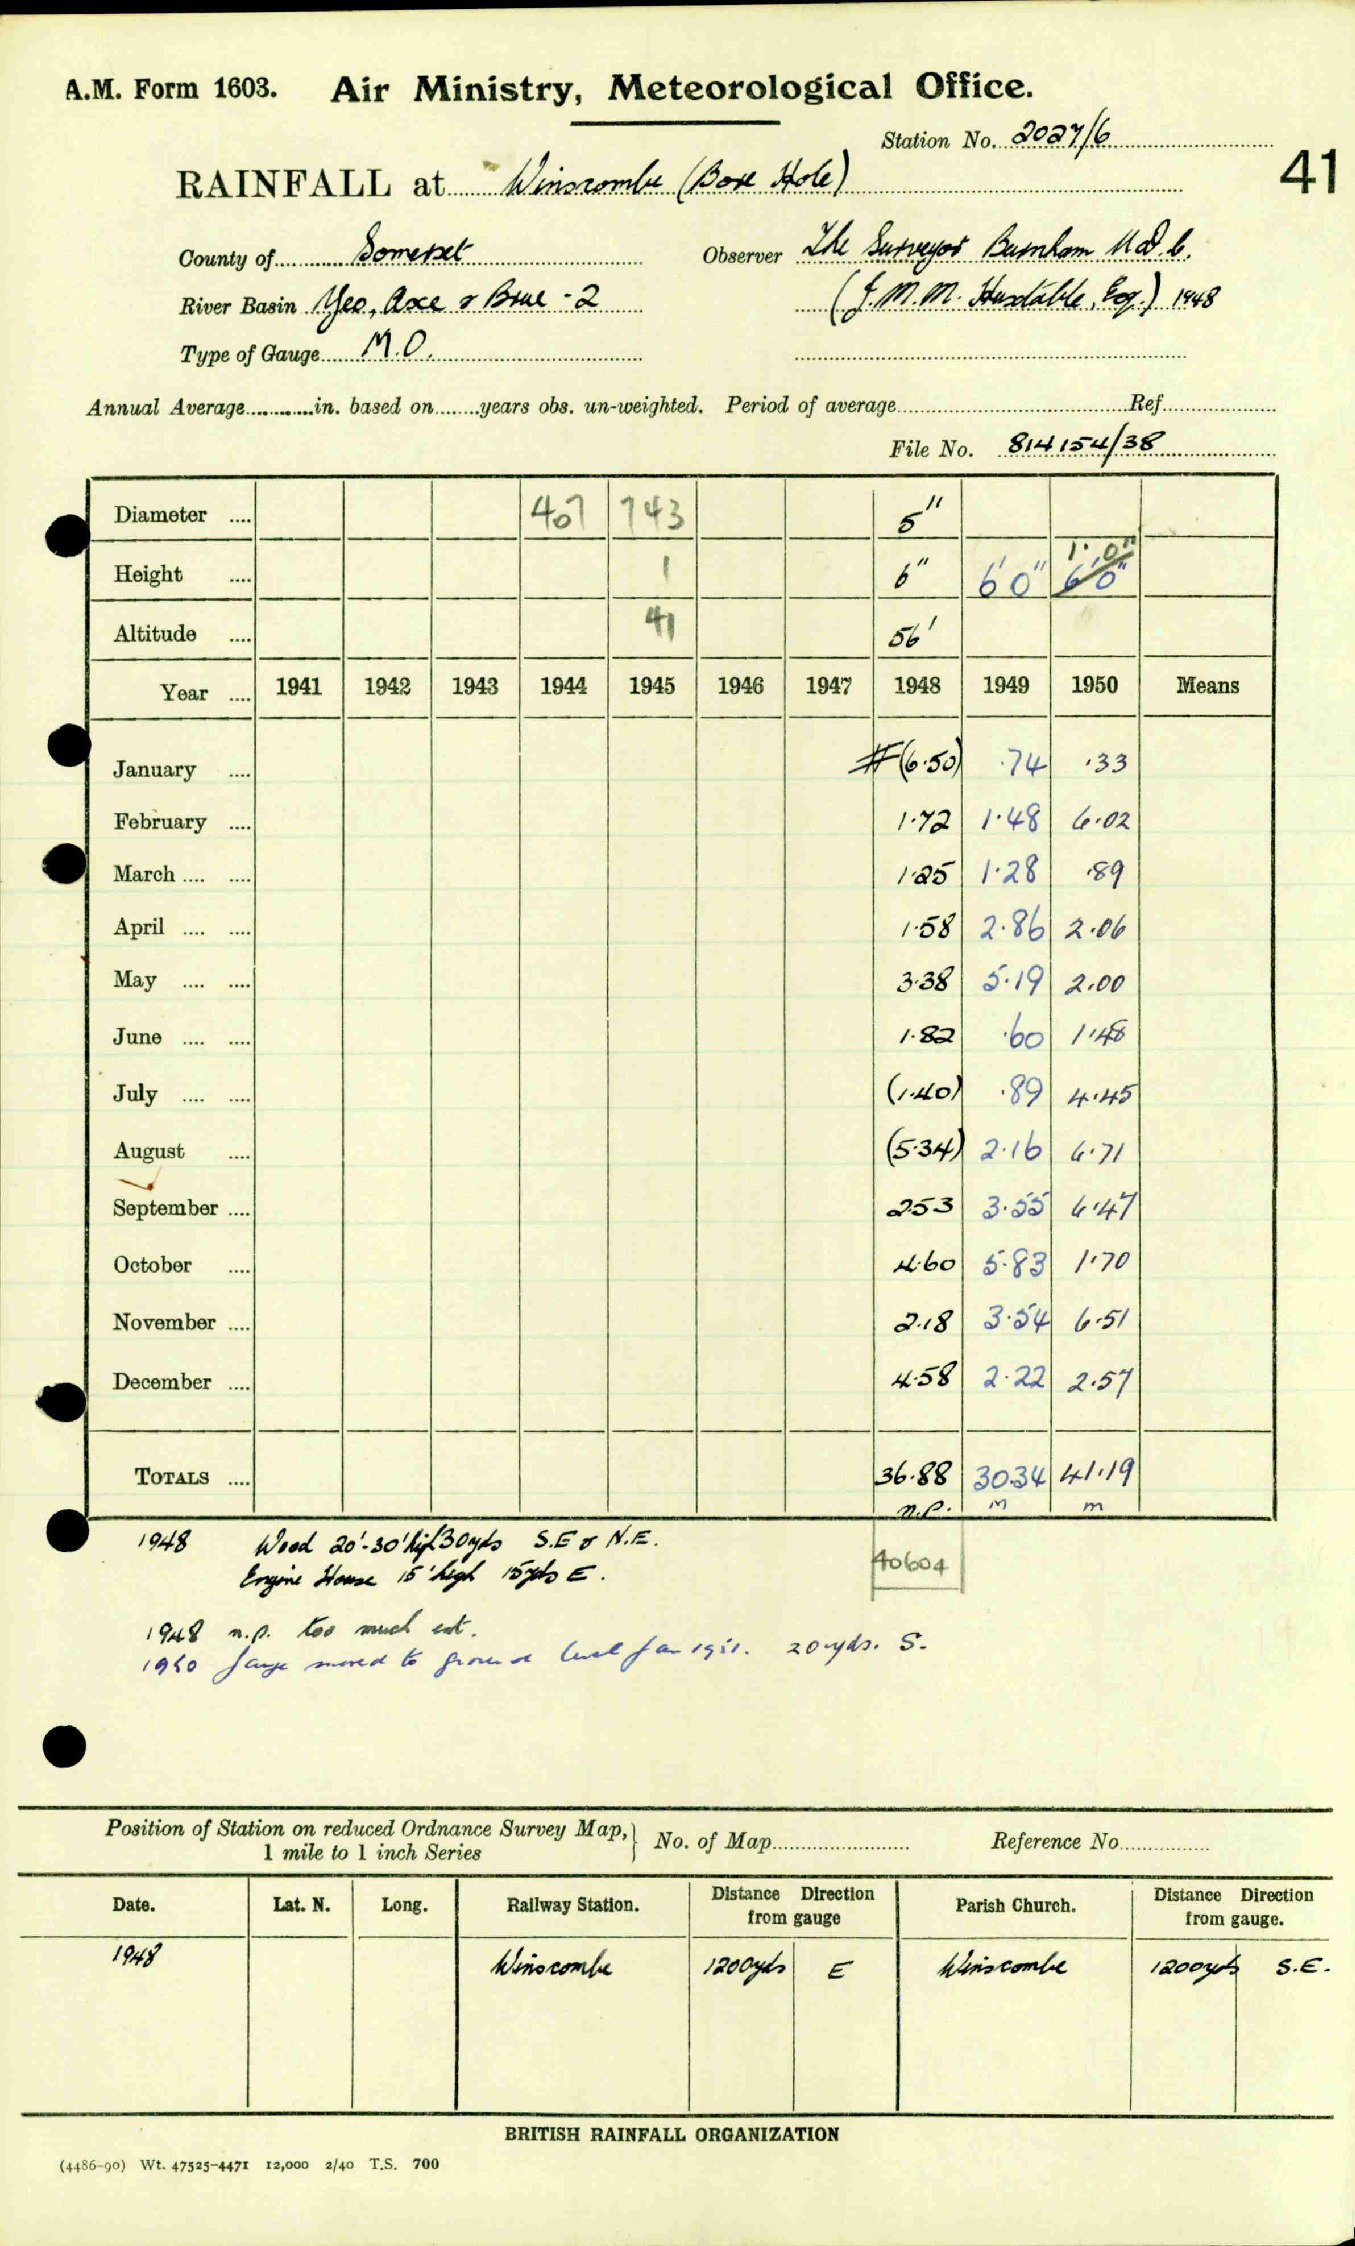 A.M. Form 1603. Air Ministry, Meteorological Office.
Station No. 2027/6
41
RAINFALL at Winscombe (Boxe Hole)
County of Somerset Observer The Surveyor Burnham U.D.C.
River Basin Yeo, Axe & Brue - 2 (J. M. M. Huxtable, Esq.) 1948
Type of Gauge M.O.
Annual Average in. based on years obs. un-weighted. Period of average Ref
File No. 814154/38
Diameter .... 407 743 5"
Height .... 1 6" 6'0" 6'0" 1'.0"
Altitude .... 41 56'
Year .... 1941 1942 1943 1944 1945 1946 1947 1948 1949 1950 Means
January .... #(6.50) .74 .33
February .... 1.72 1.48 6.02
March .... .... 1.25 1.28 .89
April .... .... 1.58 2.86 2.06
May .... .... 3.38 5.19 2.00
June .... .... 1.82 .60 1.48
July .... .... (1.40) .89 4.45
August .... (5.34) 2.16 6.71
September .... 2.53 3.55 6.47
October .... 4.60 5.83 1.70
November .... 2.18 3.54 6.51
December .... 4.58 2.22 2.57
TOTALS .... 36.88 30.34 41.19
n.p. m m
1948 Wood 20'-30' high 30yds S.E & N.E.
Engine House 15' high 15yds E.
40604
1948 n.p. too much est.
1950 Gauge moved to ground level Jan 1951. 20 yds. S.
Position of Station on reduced Ordnance Survey Map, 1 mile to 1 inch Series } No. of Map Reference No
Date. Lat. N. Long. Railway Station. Distance Direction from gauge Parish Church. Distance Direction from gauge.
1948 Winscombe 1200yds E Winscombe 1200yds S.E.
BRITISH RAINFALL ORGANIZATION
(4486-90) Wt. 47525-4471 12,000 2/40 T.S. 700